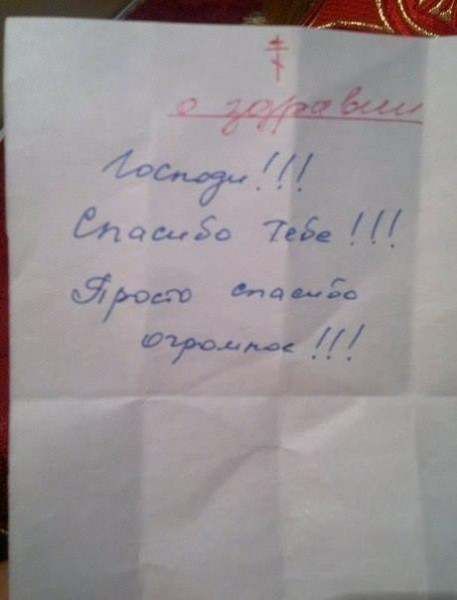 о здравии
Господи!!!
Спасибо тебе!!!
Просто спасибо
огромное!!!